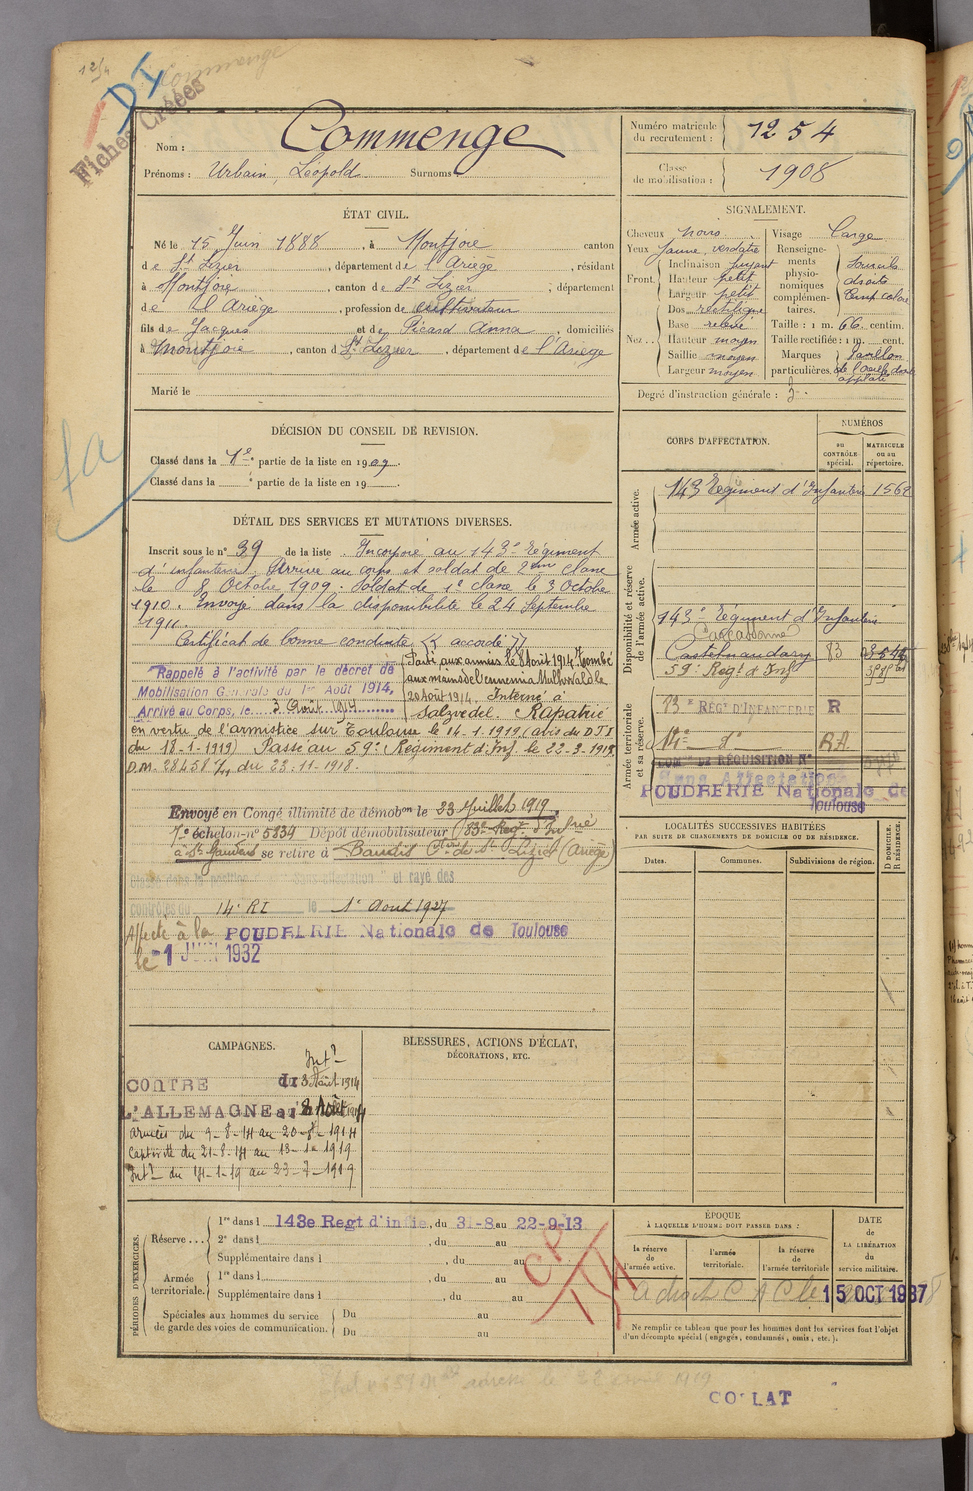 12/4
DI
Fiches Créées
Nom : Commenge
Prénoms : Urbain, Léopold Surnoms :
Numéro matricule du recrutement : 1254
Classe de mobilisation : 1908
ÉTAT CIVIL.
Né le 15 Juin 1888, à Montjoie canton
de St Lizier, département de l'Ariège, résidant
à Montjoie, canton de St Lizier, département
de l'Ariège, profession de cultivateur
fils de Jacques et de Picard Anna, domiciliés
à Montjoie, canton de St Lizier, département de l'Ariège
Marié le
SIGNALEMENT.
Cheveux noirs
Yeux jaune verdatre
Front. Inclinaison fuyant
Hauteur petit
Largeur petit
Nez. Dos rectiligne
Base relevé
Hauteur moyen
Saillie moyen
Largeur moyen
Visage large
Renseignements physionomiques complémentaires. Sourcils droits
Taille : 1 m. 66 centim.
Taille rectifiée : 1 m. cent.
Marques particulières. Pavillon de l'oreille droite applati
Degré d'instruction générale : 3.
DÉCISION DU CONSEIL DE REVISION.
Classé dans la 1e partie de la liste en 1909.
Classé dans la partie de la liste en 19
CORPS D'AFFECTATION.
NUMÉROS
au CONTRÔLE spécial.
MATRICULE ou au répertoire.
Armée active.
143 Régiment d'Infanterie 1562
Disponibilité et réserve de l'armée active.
143e Régiment d'Infanterie
Carcassonne
Castelnaudary 83
59e Régt d'Inf
Armée territoriale et sa réserve.
83e REGt D'INFANTERIE R
14e do RA
COMon DE RÉQUISITION No
Sans Affectation
POUDRERIE Nationale de Toulouse
DÉTAIL DES SERVICES ET MUTATIONS DIVERSES.
Inscrit sous le no 39 de la liste. Incorporé au 143e Régiment
d'infanterie. Arrivé au corps et soldat de 2eme classe
le 8 Octobre 1909. Soldat de 1e classe le 3 Octobre
1910. Envoyé dans la disponibilité le 24 Septembre
1911.
Certificat de bonne conduite "accordé"
Rappelé à l'activité par le décret de
Mobilisation Générale du 1er Août 1914,
Arrivé au Corps, le 3 Août 1914
Parti aux armées le 8 Août 1914. Tombé
aux mains de l'ennemi à Mulhwald le
20 Août 1914. Interné à
Salzvedel. Rapatrié
en vertu de l'armistice sur Toulouse le 14-1-1919 (avis du DTI
du 18-1-1919) Passé au 59e Régiment d'Inf. le 22-3-1919
D.M. 28458 du 23-11-1918.
Envoyé en Congé illimité de démobon le 23 Juillet 1919
7e échelon no 5834 Dépôt démobilisateur 83e Regt d'Infrie
à St Gaudens se retire à Baudis Cne de St Lizier (Ariège)
Classé dans la position dite "sans affectation" et rayé des
contrôles du 14e RI le 1e Aout 1927
Affecté à la POUDRERIE Nationale de Toulouse
le -1 JUIN 1932
LOCALITÉS SUCCESSIVES HABITÉES
PAR SUITE DE CHANGEMENTS DE DOMICILE OU DE RÉSIDENCE.
Dates. Communes. Subdivisions de région. D DOMICILE. R RÉSIDENCE.
CAMPAGNES.
Intr
CONTRE du 3 Août 1914
L'ALLEMAGNE au 8 Août 1914
armées du 9-8-14 au 20-8-1914
Captivité du 21-8-14 au 13-1-1919
Intr du 14-1-19 au 23-7-1919
BLESSURES, ACTIONS D'ÉCLAT,
DÉCORATIONS, ETC.
PÉRIODES D'EXERCICES.
Réserve... 1re dans l 143e Regt d'infie, du 31-8 au 22-9-13
2e dans l , du au
Supplémentaire dans l , du au
Armée territoriale. 1re dans l , du au
Supplémentaire dans l , du au
Spéciales aux hommes du service de garde des voies de communication. Du au
Du au
ÉPOQUE
À LAQUELLE L'HOMME DOIT PASSER DANS :
la réserve de l'armée active.
l'armée territoriale.
la réserve de l'armée territoriale
DATE de LA LIBÉRATION du service militaire.
A droit C A C le 15 OCT 1937
Ne remplir ce tableau que pour les hommes dont les services font l'objet
d'un décompte spécial (engagés, condamnés, omis, etc.).
COLLAT